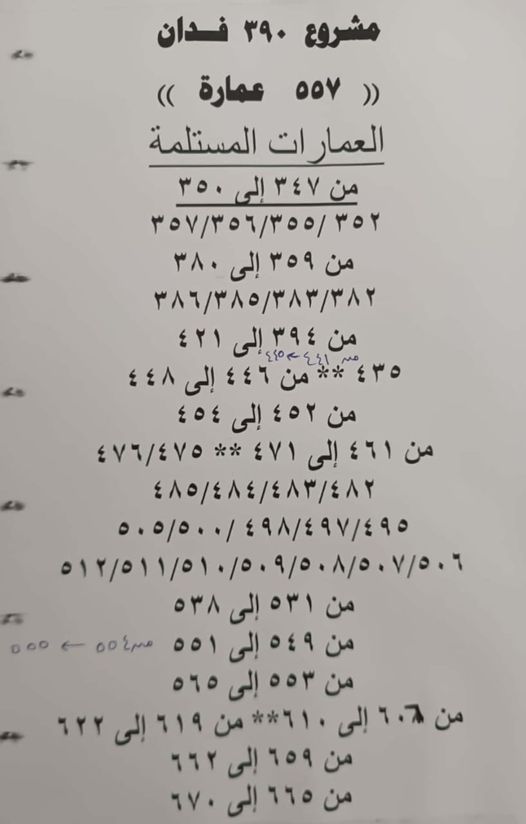 مشروع ٣٩٠ فدان
(( ٥٥٧ عمارة ))
العمارات المستلمة
من ٣٤٧ إلى ٣٥٠
٣٥٧/٣٥٦/٣٥٥/ ٣٥٢
من ٣٥٩ إلى ٣٨٠
٣٨٦/٣٨٥/٣٨٣/٣٨٢
من ٣٩٤ إلى ٤٢١
من ٤٤١ ← ٤٤٥
٤٣٥ ** من ٤٤٦ إلى ٤٤٨
من ٤٥٢ إلى ٤٥٤
من ٤٦١ إلى ٤٧١ ** ٤٧٦/٤٧٥
٤٨٥/٤٨٤/٤٨٣/٤٨٢
٥٠٥/٥٠٠/ ٤٩٨/٤٩٧/٤٩٥
٥١٢/٥١١/٥١٠/٥٠٩/٥٠٨/٥٠٧/٥٠٦
من ٥٣١ إلى ٥٣٨
من ٥٤٩ إلى ٥٥١ من ٥٥٤ ← ٥٥٥
من ٥٥٣ إلى ٥٦٥
من ٦٠٨ إلى ٦١٠** من ٦١٩ إلى ٦٢٢
من ٦٥٩ إلى ٦٦٢
من ٦٦٥ إلى ٦٧٠